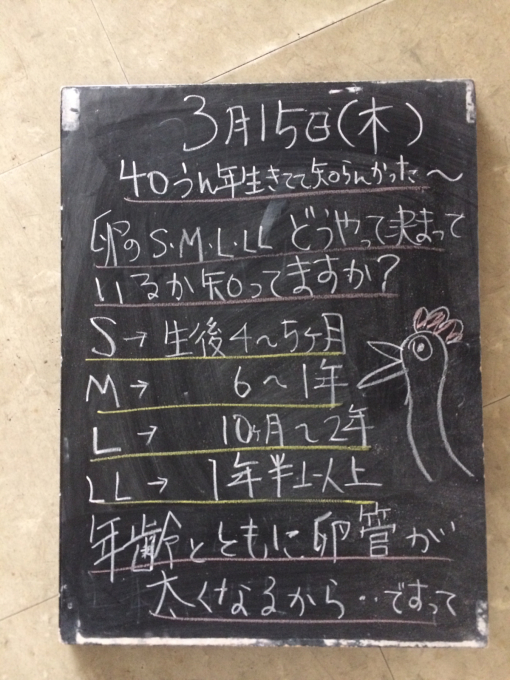 3月15日(木)
40うん年生きてて知らんかった〜
卵のS・M・L・LL どうやって決まって
いるか知ってますか?
S→ 生後4〜5ヶ月
M→ 6〜1年
L→ 10ヶ月〜2年
LL→ 1年半以上
年齢とともに卵管が
太くなるから‥ですって